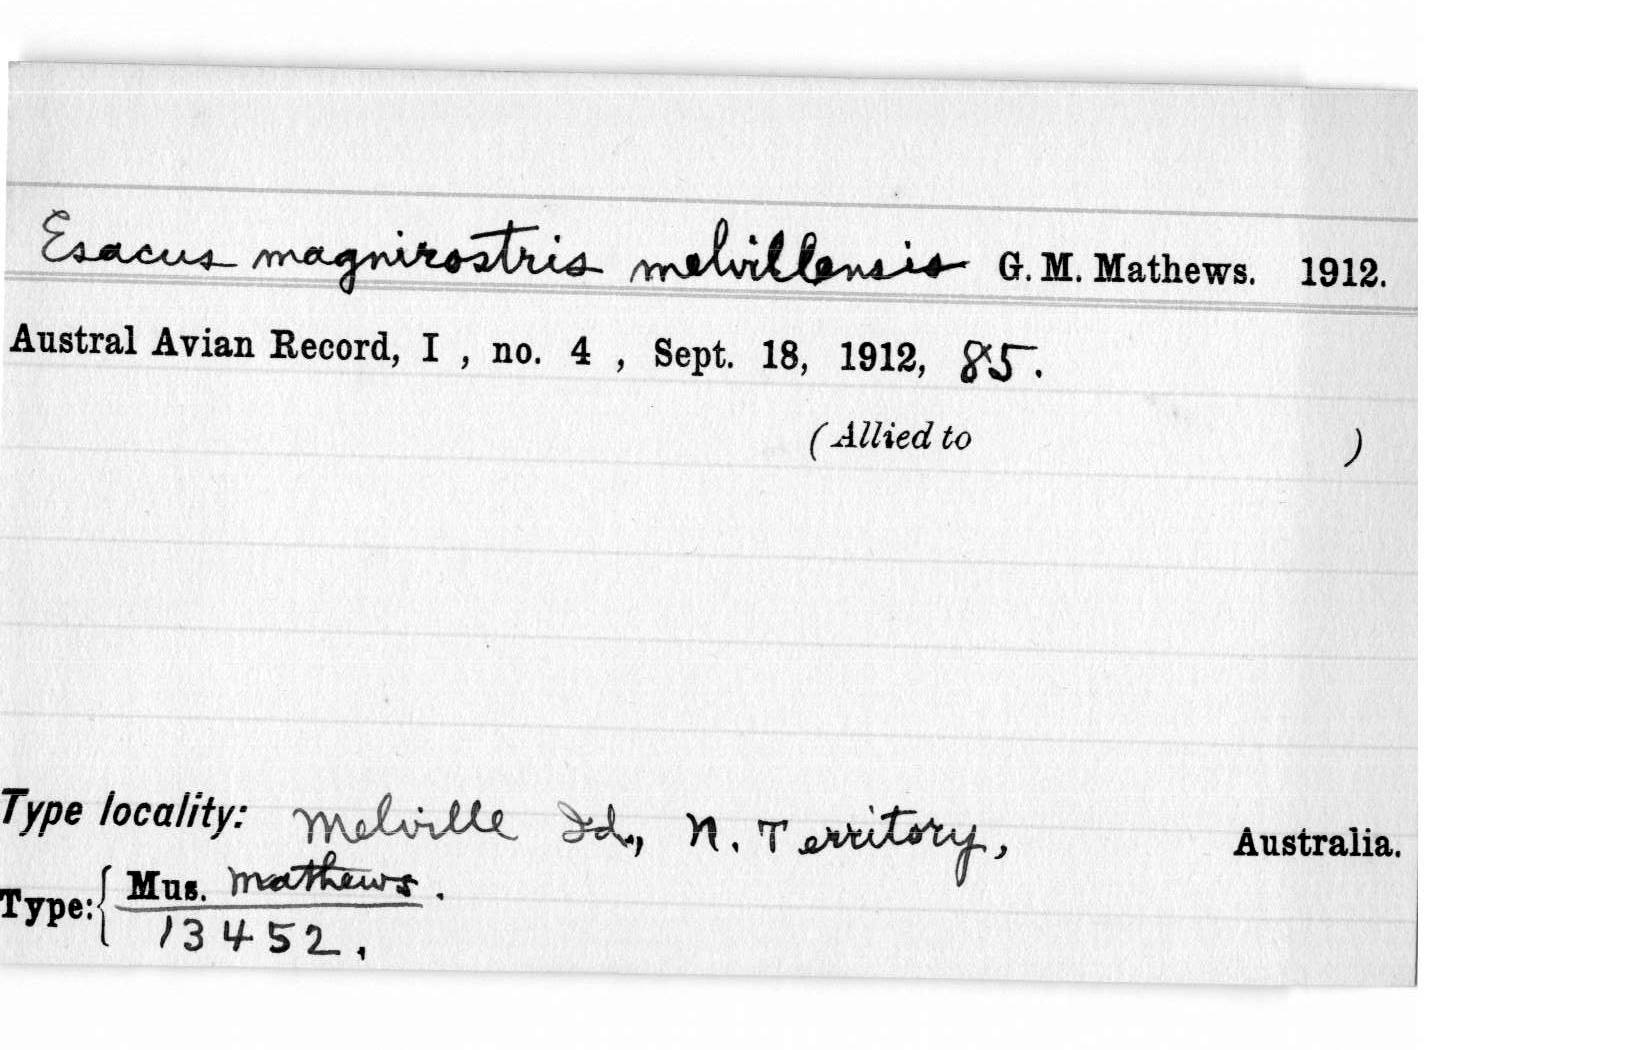 Esacus magnirostris melvillensis G. M. Mathews. 1912.
Austral Avian Record, I , no. 4 , Sept. 18, 1912, 85.
(Allied to )
Type locality: Melville Id., N. Territory, Australia.
Type: { Mus. Mathews.
13452.